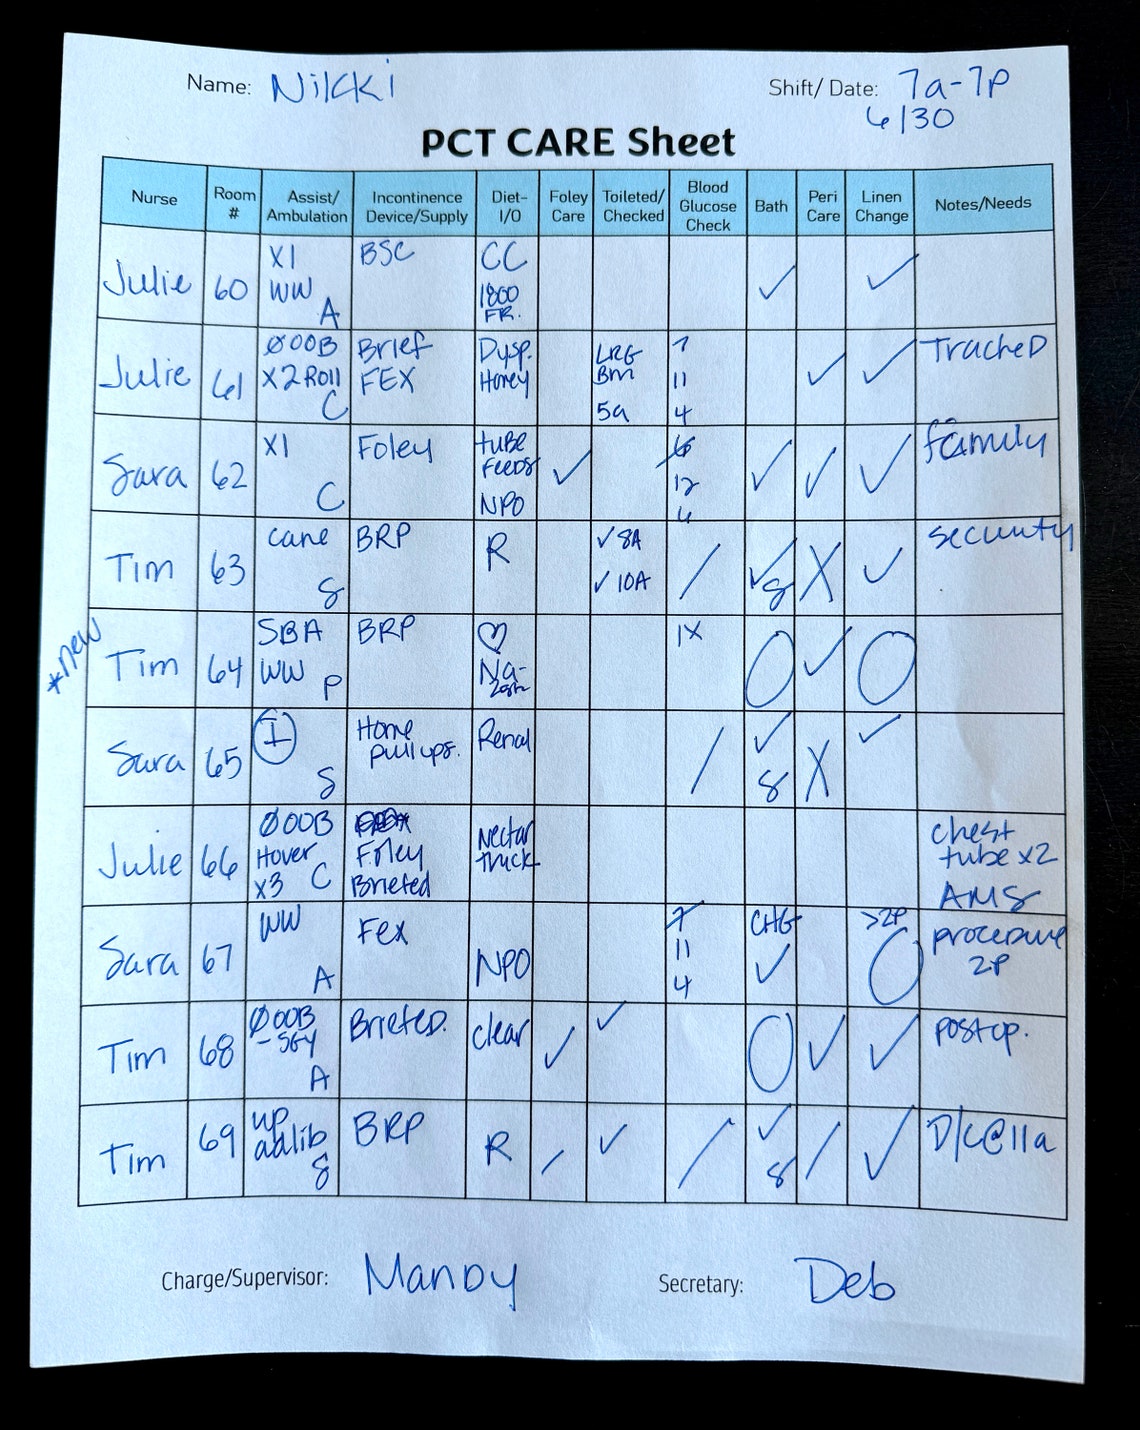 Name: Nikki Shift/ Date: 7a-7p
6/30
PCT CARE Sheet
Nurse Room # Assist/ Ambulation Incontinence Device/Supply Diet- I/O Foley Care Toileted/ Checked Blood Glucose Check Bath Peri Care Linen Change Notes/Needs
Julie 60 X1 WW A BSC CC 1800 FR. ✓ ✓
Julie 61 ØOOB X2 Roll C Brief FEX Dysp. Honey LRG Bm 5a 7 11 4 ✓ ✓ TracheD
Sara 62 X1 C Foley tube Feeds NPO ✓ 6 12 6 ✓ ✓ ✓ family
Tim 63 cane S BRP R ✓ 8A ✓ 10A / ✓ S X ✓ security
*new Tim 64 SBA WW P BRP ♡ Na- 2gm 1X O ✓ O
Sara 65 I S Home pull ups. Renal / ✓ S X ✓
Julie 66 ØOOB Hover X3 C Foley Briefed Nectar thick chest tube x2 AMS
Sara 67 WW A Fex NPO 7 11 4 CHG ✓ >2P O procedure 2P
Tim 68 ØOOB A Briefed. clear ✓ ✓ O ✓ ✓ post op.
Tim 69 up adlib S BRP R / ✓ / ✓ S / ✓ D/C@11a
Charge/Supervisor: Mandy Secretary: Deb